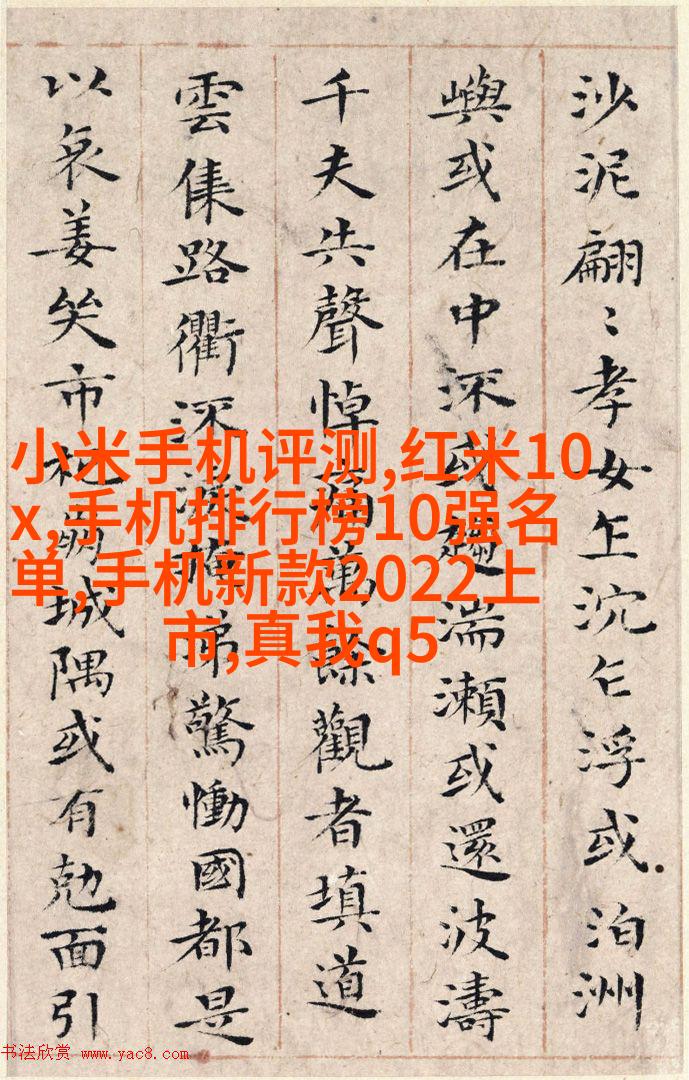 沙泥翩〻孝女乍沉乍浮或泊洲
嶼或在中流或趨湍瀨或還波濤
千夫共聲悼痛萬餘觀者填道
雲集路衢流淚掩涕驚慟國都是
以哀姜哭市杞崩城隅或有剋面引
小米手机评测,红米10
x,手机排行榜10强名
单,手机新款2022上
市,真我q5
书法欣赏 www.yac8.com